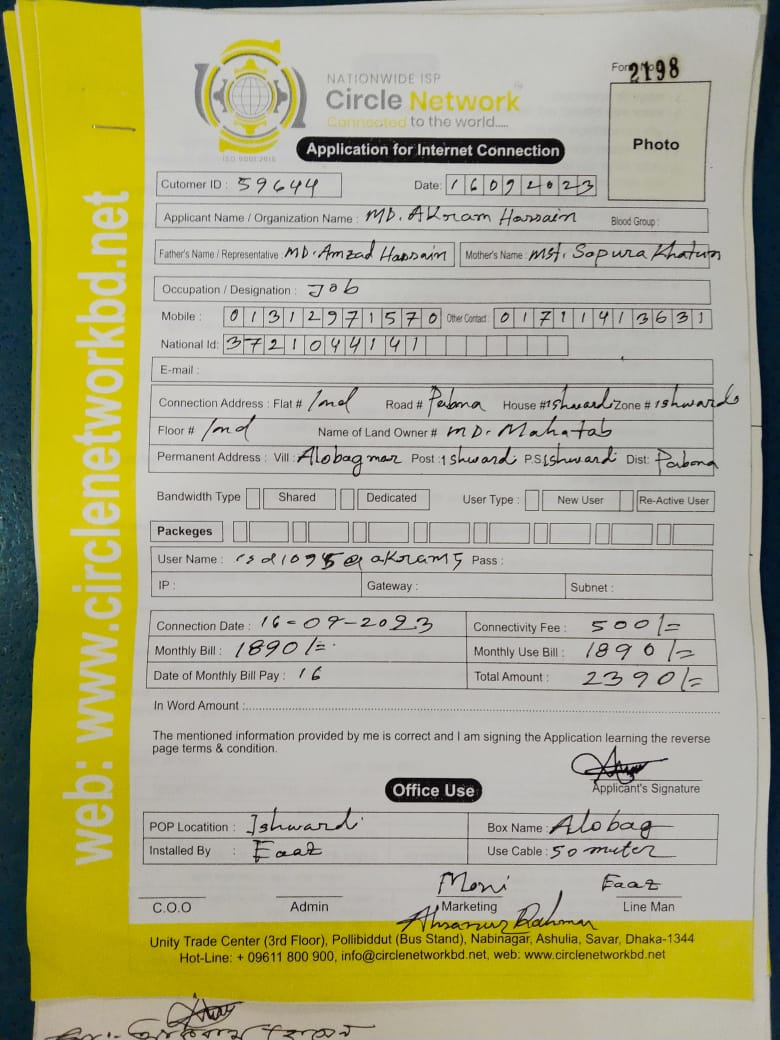 Form No 2198
NATIONWIDE ISP
Circle Network
Connected to the world.....
ISO 9001:2015
Application for Internet Connection
Photo
Cutomer ID : 59644 Date: 16092023
Applicant Name / Organization Name : MD. AKram Hossain Blood Group :
Father's Name / Representative : MD. Amzad Hossain Mother's Name : Mst. Sopura Khatun
Occupation / Designation : Job
Mobile : 01312971570 Other Contact : 01711413631
National Id: 3721044141
E-mail :
Connection Address : Flat # / Road # Pabna House # Ishwardi Zone # Ishwardi
Floor # / Name of Land Owner # MD. Mahatab
Permanent Address : Vill : Alobagmor Post : Ishwardi P.S Ishwardi Dist: Pabna
Bandwidth Type Shared Dedicated User Type : New User Re-Active User
Packeges
User Name : Pass :
IP : Gateway : Subnet :
Connection Date : 16-09-2023 Connectivity Fee : 500/=
Monthly Bill : 1890/= Monthly Use Bill : 1890/=
Date of Monthly Bill Pay : 16 Total Amount : 2390/=
In Word Amount :
The mentioned information provided by me is correct and I am signing the Application learning the reverse
page terms & condition.
Applicant's Signature
Office Use
POP Locatition : Ishwardi Box Name : Alobag
Installed By : Faaz Use Cable : 50 muter
Moni Faaz
C.O.O Admin Marketing Line Man
Ahsanur Rahman
Unity Trade Center (3rd Floor), Pollibiddut (Bus Stand), Nabinagar, Ashulia, Savar, Dhaka-1344
Hot-Line: + 09611 800 900, info@circlenetworkbd.net, web: www.circlenetworkbd.net
web: www.circlenetworkbd.net